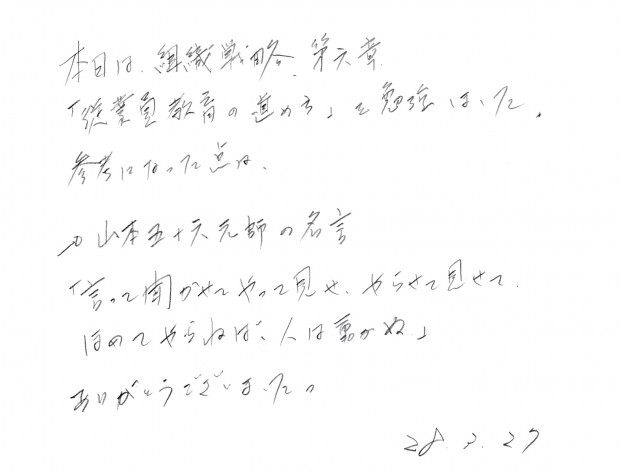 本日は、組織戦略、第六章
「従業員教育の進め方」を勉強しました。
参考になった点は、
山本五十六元師の名言
「言って聞かせてやって見せ、やらせて見せて、
ほめてやらねば、人は動かぬ」
ありがとうございました。
28.2.27